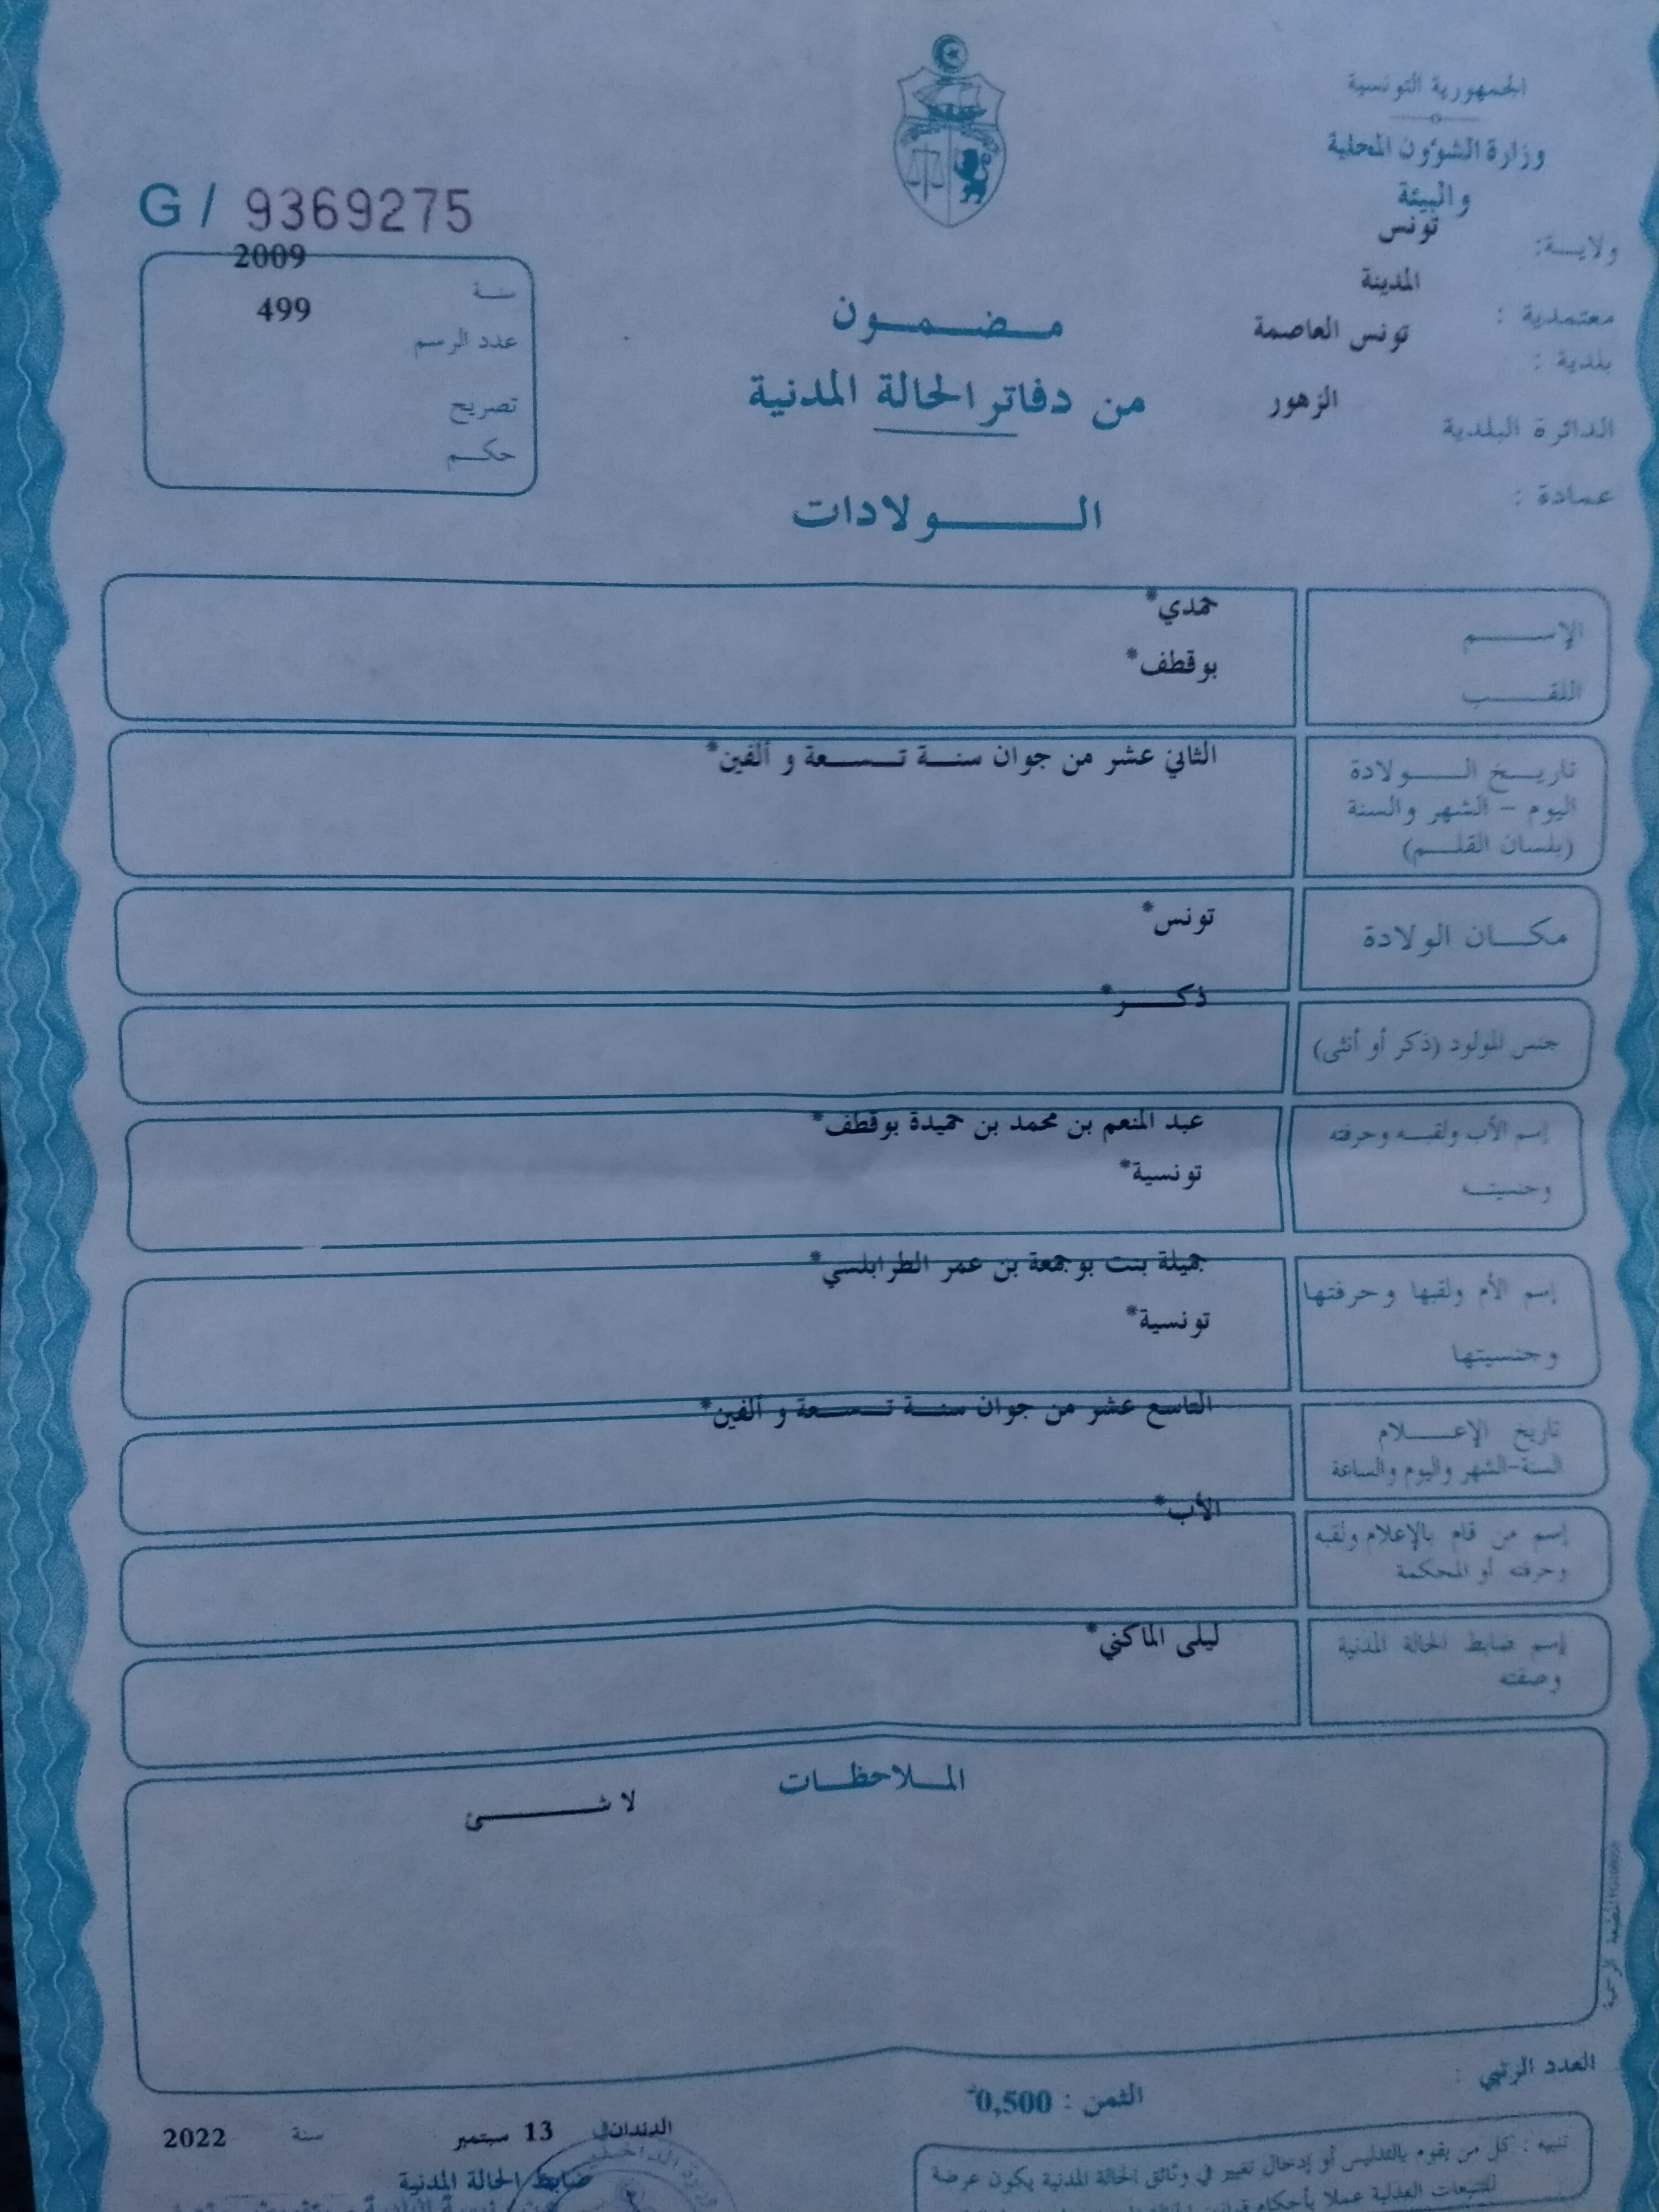 الجمهورية التونسية
وزارة الشؤون المحلية
والبيئة
ولايـــة: تونس
معتمدية : المدينة
بلدية : تونس العاصمة
الدائرة البلدية الزهور
عمادة :
G / 9369275
سنــة 2009
عدد الرسم 499
تصريح
حكــم
مـضـمـون
من دفاتر الحالة المدنية
الـولادات
الإســـم حمدي*
اللقـــب بوقطف*
تاريـخ الـــولادة الثاني عشر من جوان سنة تسعة و ألفين*
اليوم – الشهر والسنة
(بلسان القلــم)
مكــان الولادة تونس*
جنس المولود (ذكر أو أنثى) ذكـر*
إسم الأب ولقبـه وحرفته عبد المنعم بن محمد بن حميدة بوقطف*
وجنسيتـه تونسية*
إسم الأم ولقبها وحرفتها جميلة بنت بوجمعة بن عمر الطرابلسي*
وجنسيتها تونسية*
تاريخ الإعــلام التاسع عشر من جوان سنة تسعة و ألفين*
السنة-الشهر واليوم والساعة
إسم من قام بالإعلام ولقبه الأب*
وحرفته أو المحكمة
إسم ضابط الحالة المدنية ليلى الماكني*
وصفته
المـلاحظـات
لا شـــئ
العدد الرتبي :
الثمن : 0,500د
الدندان في 13 سبتمبر سنة 2022
ضابط الحالة المدنية
تنبيه : كل من يقوم بالتدليس أو إدخال تغيير في وثائق الحالة المدنية يكون عرضة
للتتبعات العدلية عملا بأحكام